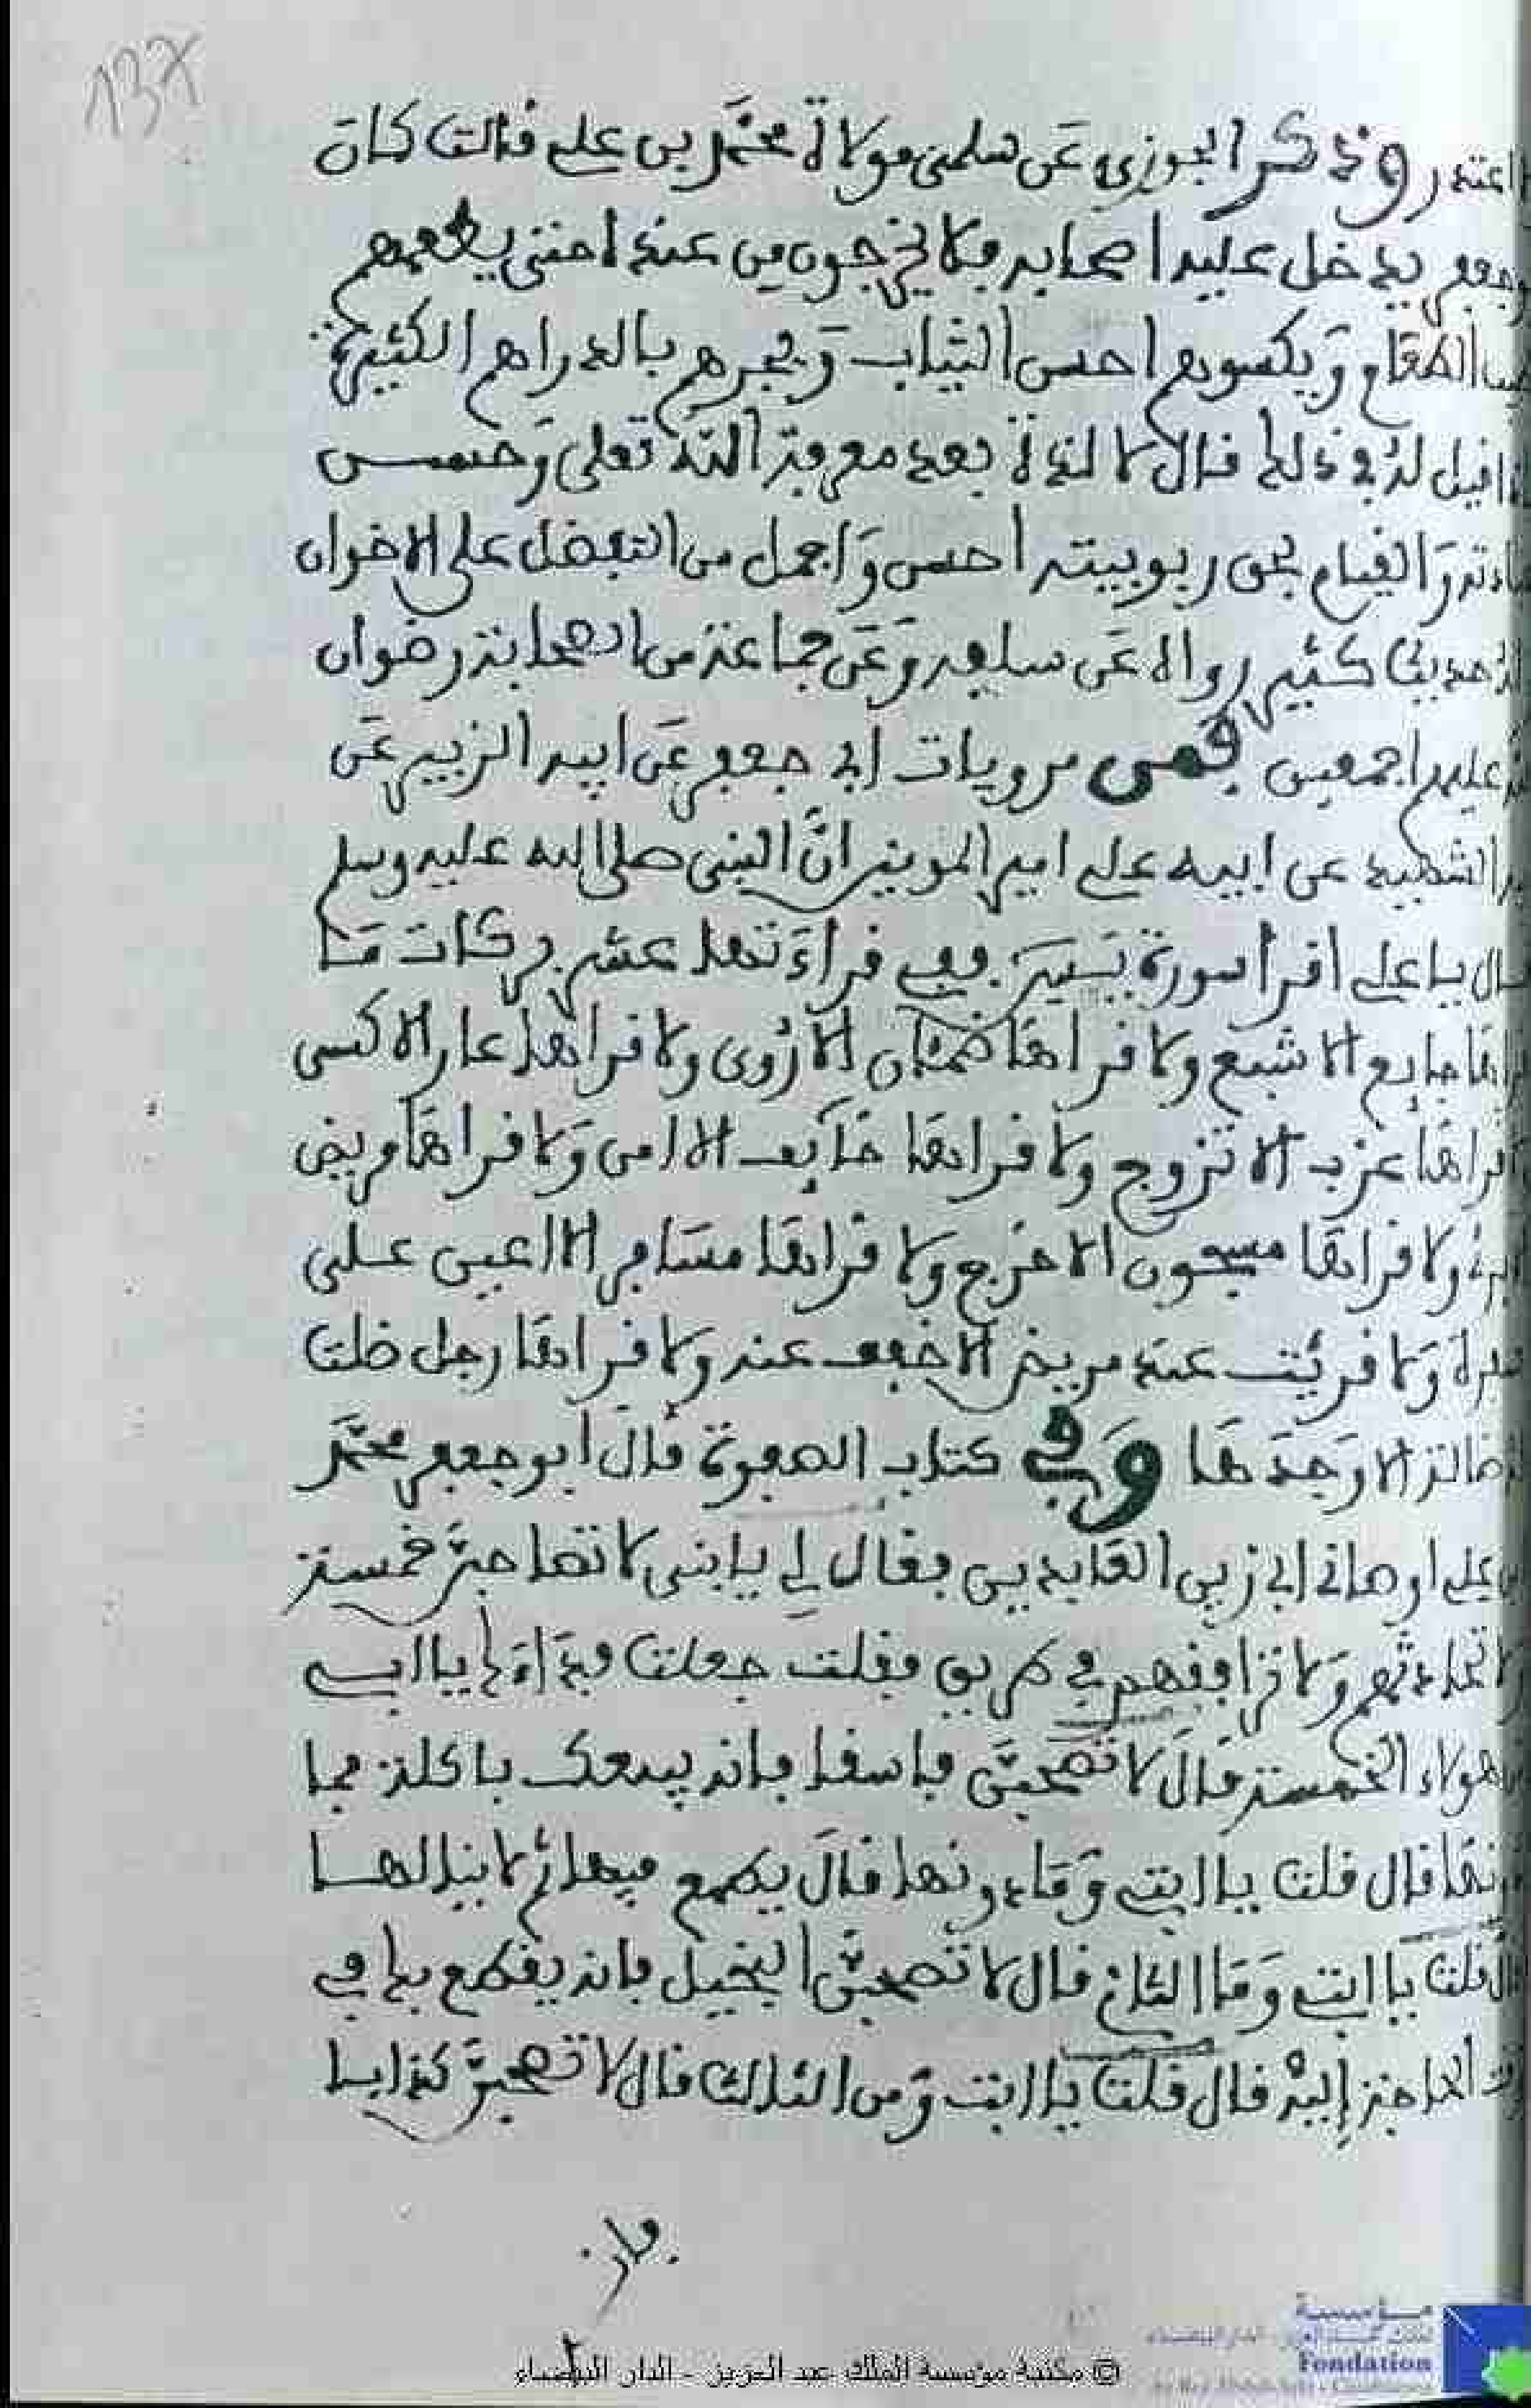 137
اعتذر وذكر الجوزي عن سلمى مولاة محمد بن علي قالت كان
جعفر يدخل عليه اصحابه فلا يخرجون من عنده حتى يطعمهم
الطعام ويكسوهم احسن الثياب ويجبرهم بالدراهم الكثيرة
اذا قيل له في ذلك قال لا لذة بعد معرفة الله تعلى وحسن
والقيام بحق ربوبيته احسن واجمل من التفضل على الاخوان
حديث كثير رواه عن سلفه وعن جماعة من الصحابة رضوان
عليهم اجمعين فمن مرويات ابي جعفر عن ابيه الزبير عن
الشهيد عن ابيه علي امير المومنين ان النبي صلى الله عليه وسلم
قال يا علي اقرا سورة يس ففي قراءتها عشر بركات ما
جايع الا شبع ولا قراها ضمئان الا روى ولا قراها عار الا كسى
قراها عزب الا تزوج ولا قراها خايف الا امن ولا قراها مريض
ولا قراها مسجون الا خرج ولا قراها مسافر الا اعين على
سفره ولا قرئت عند مريض الا خفف عنه ولا قراها رجل ضلت
ضالة الا وجدها وفي كتاب الصفوة قال ابو جعفر محمد
بن علي اوصاني ابي زين العابدين فقال لي يا بني لا تصاحب خمسة
ولا تحادثهم ولا ترافقهم في طريق فقلت جعلت فداءك يا ابت
هولاء الخمسة قال لا تصحبن فاسقا فانه يبيعك باكلة فما
دونها قال قلت يا ابت وما دونها قال يطمع فيها ثم لا ينالها
قال قلت يا ابت وما الثاني قال لا تصحبن البخيل فانه يقطع بك في
الحاجة إليه قال قلت يا ابت ومن الثالث قال لا تصحبن كذابا
فانه
© مكتبة مؤسسة الملك عبد العزيز - الدار البيضاء
مؤسسة
Fondation